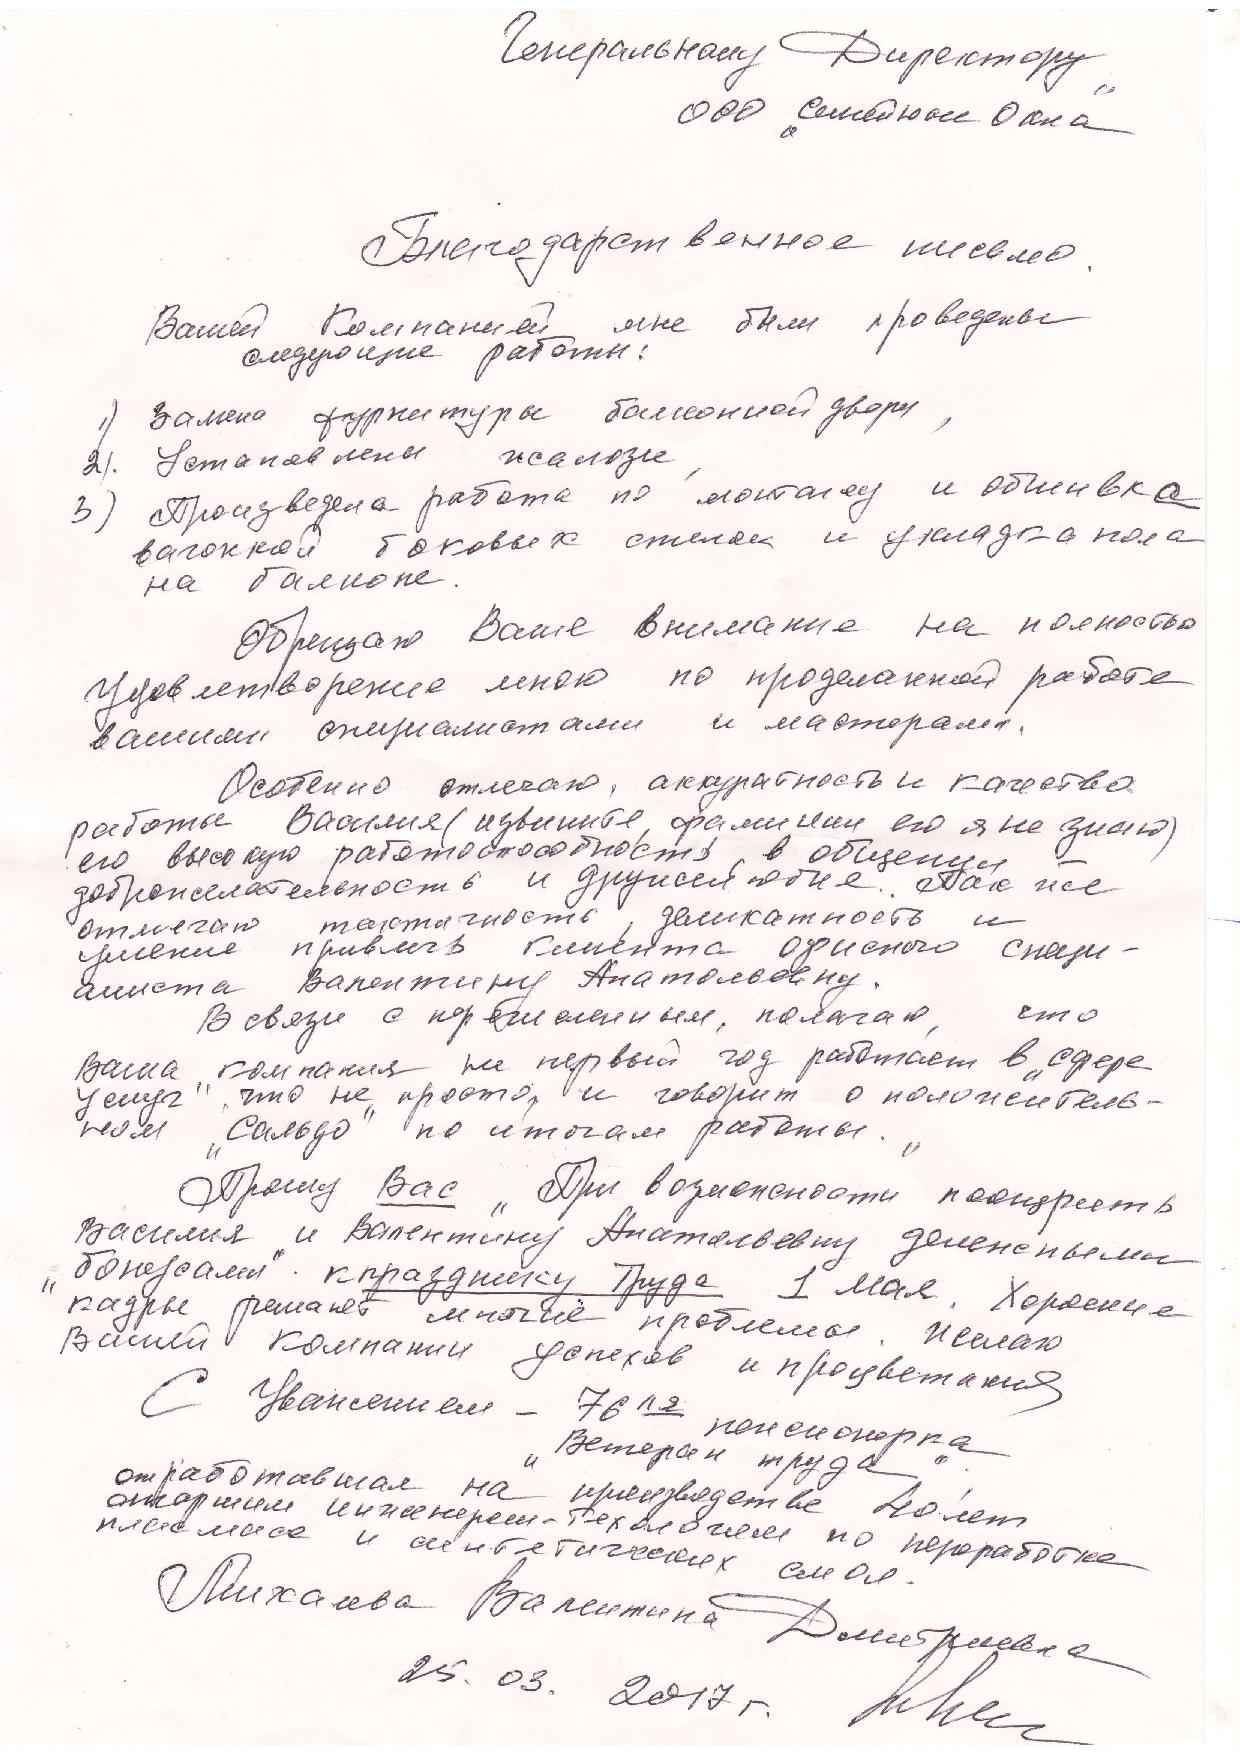 Генеральному Директору
ООО "Семейные Окна"
Благодарственное письмо.
Вашей Компанией мне были проведены
следующие работы:
1) Замена фурнитуры балконной двери,
2). Установлены жалюзи,
3) Произведена работа по монтажу и обшивка
вагонкой боковых стенок и укладка пола
на балконе.
Обращаю Ваше внимание на полностью
удовлетворение мною по проделанной работе
вашими специалистами и мастерами.
Особенно отмечаю, аккуратность и качество
работы Василия (извините, фамилии его я не знаю)
его высокую работоспособность, в общении
доброжелательность и дружелюбие. Так же
отмечаю тактичность, деликатность и
умение привлечь клиента офисного специ-
алиста Валентину Анатольевну.
В связи с перечисленным, полагаю, что
Ваша компания не первый год работает в "сфере
услуг", что не просто, и говорит о положитель-
ном "Сальдо" по итогам работы."
Прошу Вас "При возможности поощрить
Василия и Валентину Анатольевну денежными
"бонусами". к празднику Труда 1 Мая. Хорошие
кадры решают многие проблемы. Желаю
Вашей Компании успехов и процветания
С Уважением – 76 ля пенсионерка
"Ветеран труда".
отработавшая на производстве 40 лет
старшим инженером-технологом по переработке
пластмасс и синтетических смол.
Михалева Валентина Дмитриевна
25. 03. 2017 г.